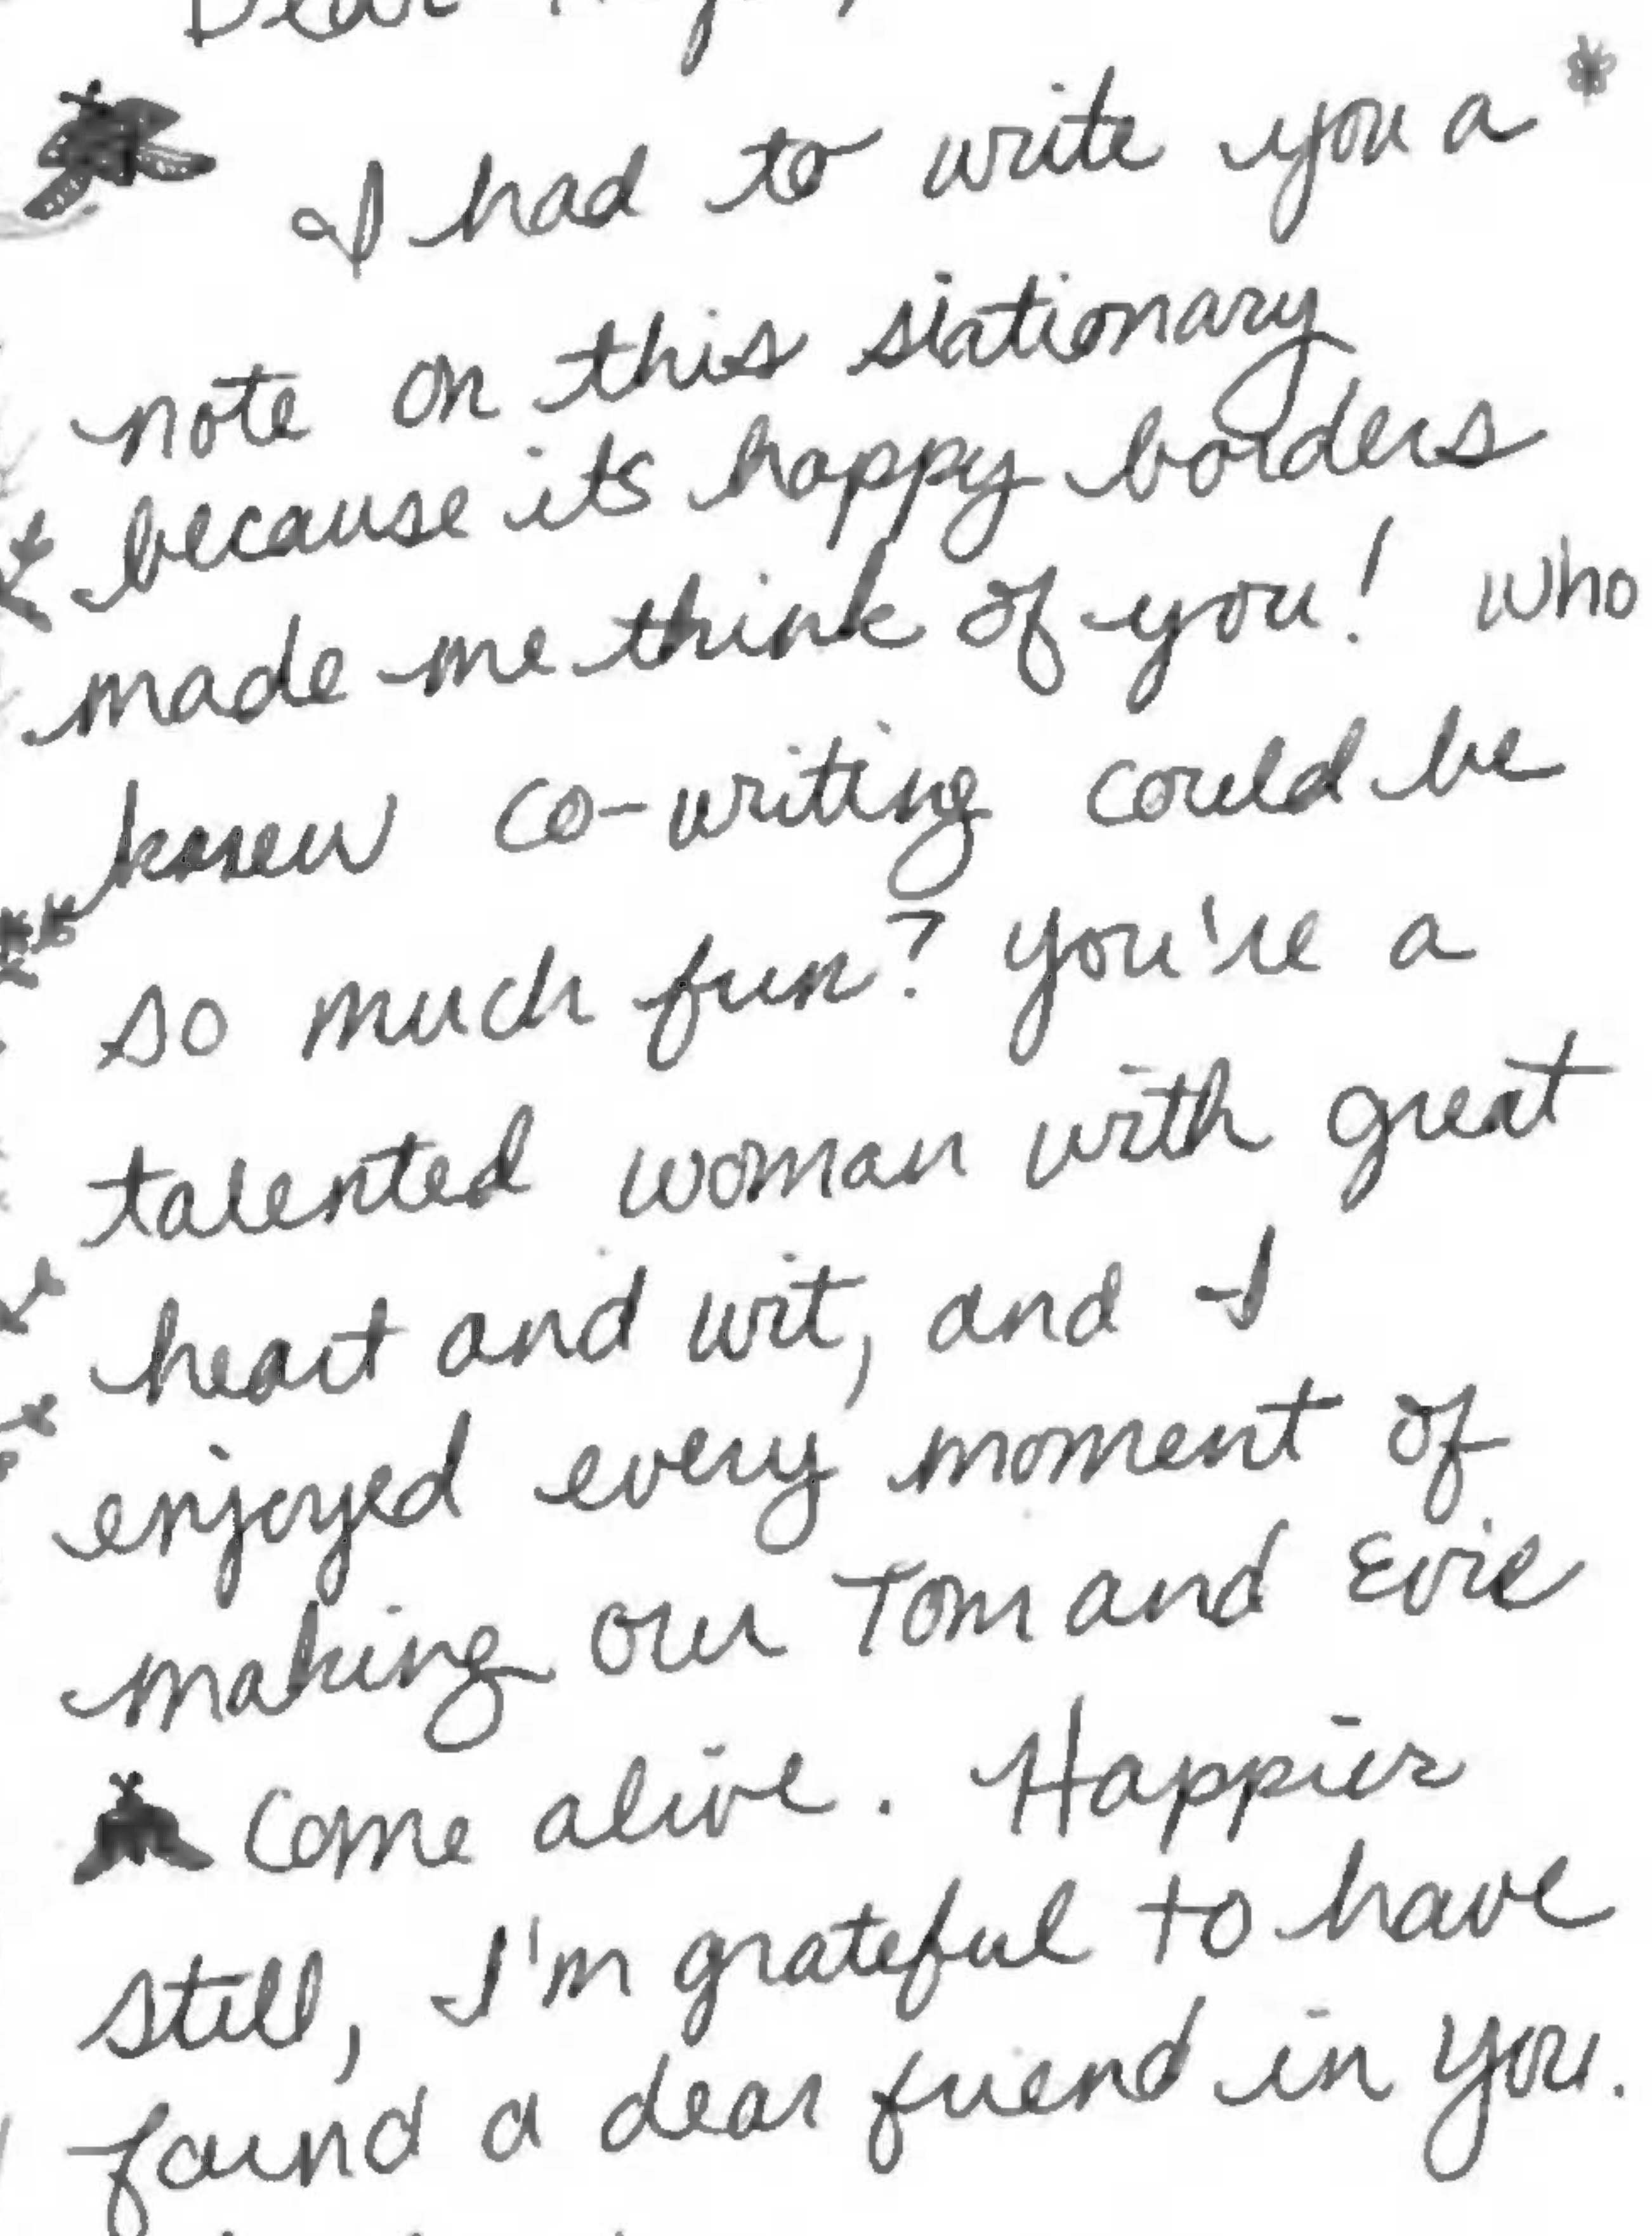 Dear
I had to write you a
note on this stationary
because its happy borders
made me think of you! Who
knew co-writing could be
so much fun? You're a
talented woman with great
heart and wit, and I
enjoyed every moment of
making our Tom and Evie
come alive. Happier
still, I'm grateful to have
found a dear friend in you.